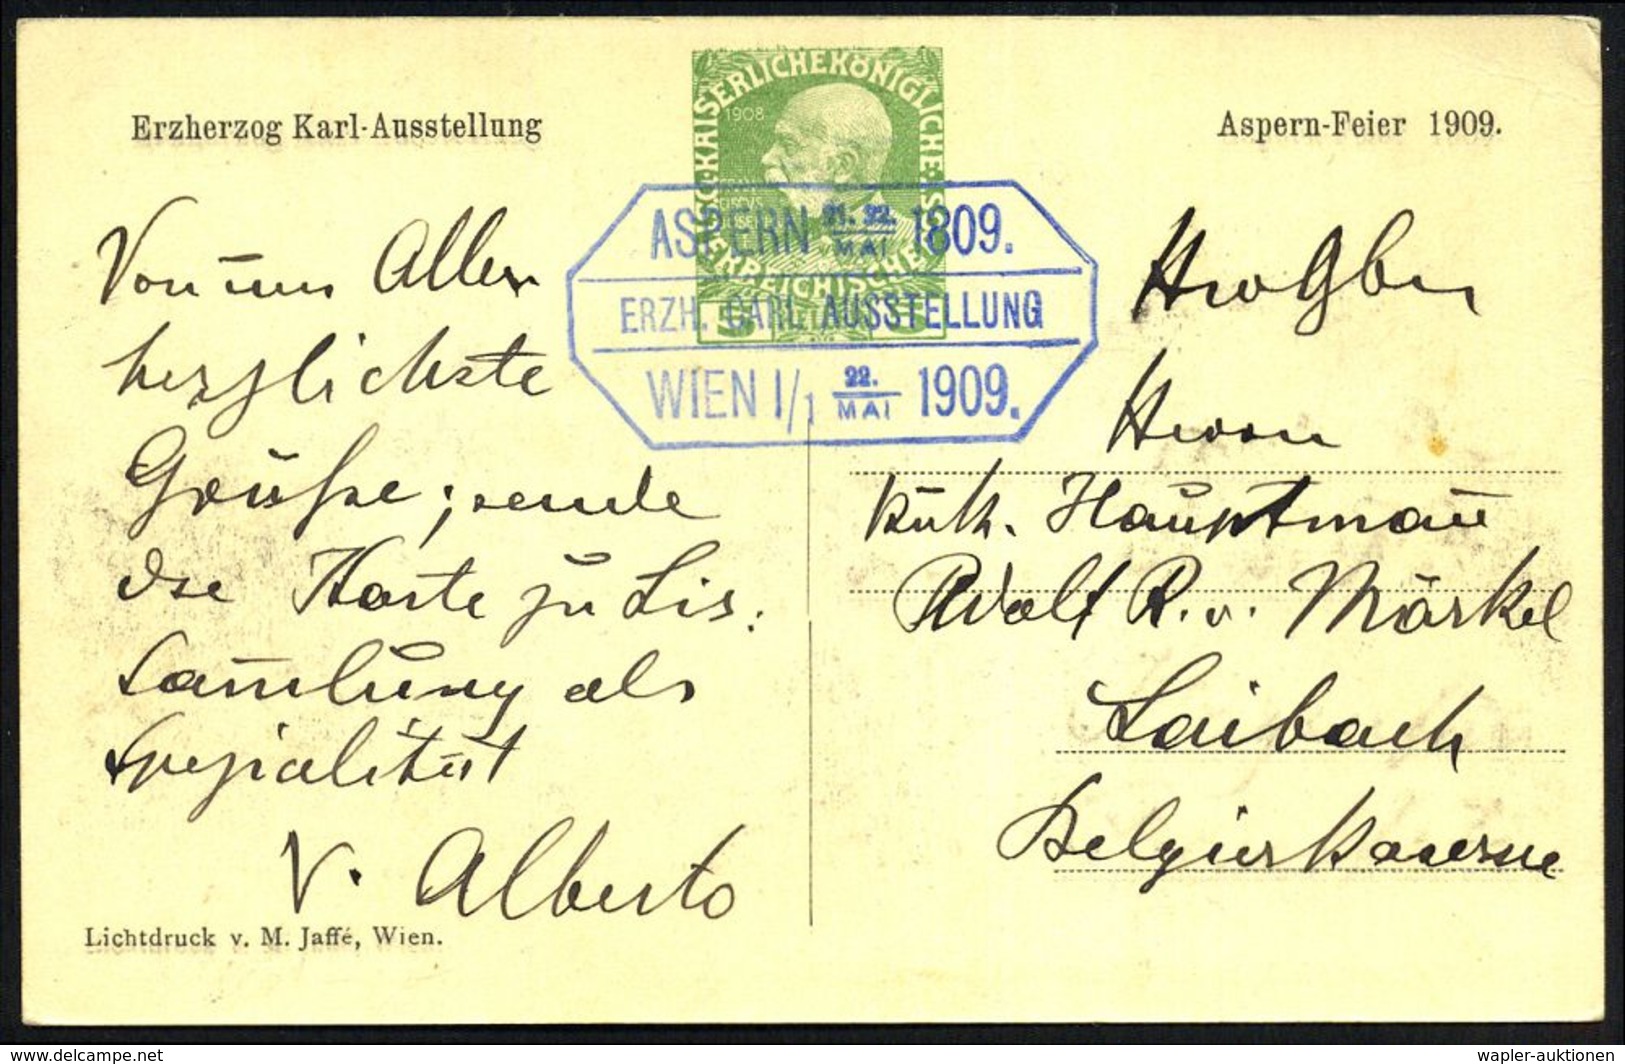 Erzherzog Karl-Ausstellung
Aspern-Feier 1909.
KAISERLICHEKÖNIGLICHE
1908
ASPERN 21. 22. MAI 1809.
ERZH. CARL AUSSTELLUNG
WIEN I/1 22. MAI 1909.
Von uns Allen
herzlichste
Grüße; sende
die Karte zu
Sammlung als
Spezialität
V. Alberto
Lichtdruck v. M. Jaffé, Wien.
Herrn
k.u.k. Hauptmann
Adolf R. v. Märkel
Laibach
Belgierkaserne
delcampe.net
wapler-auktionen